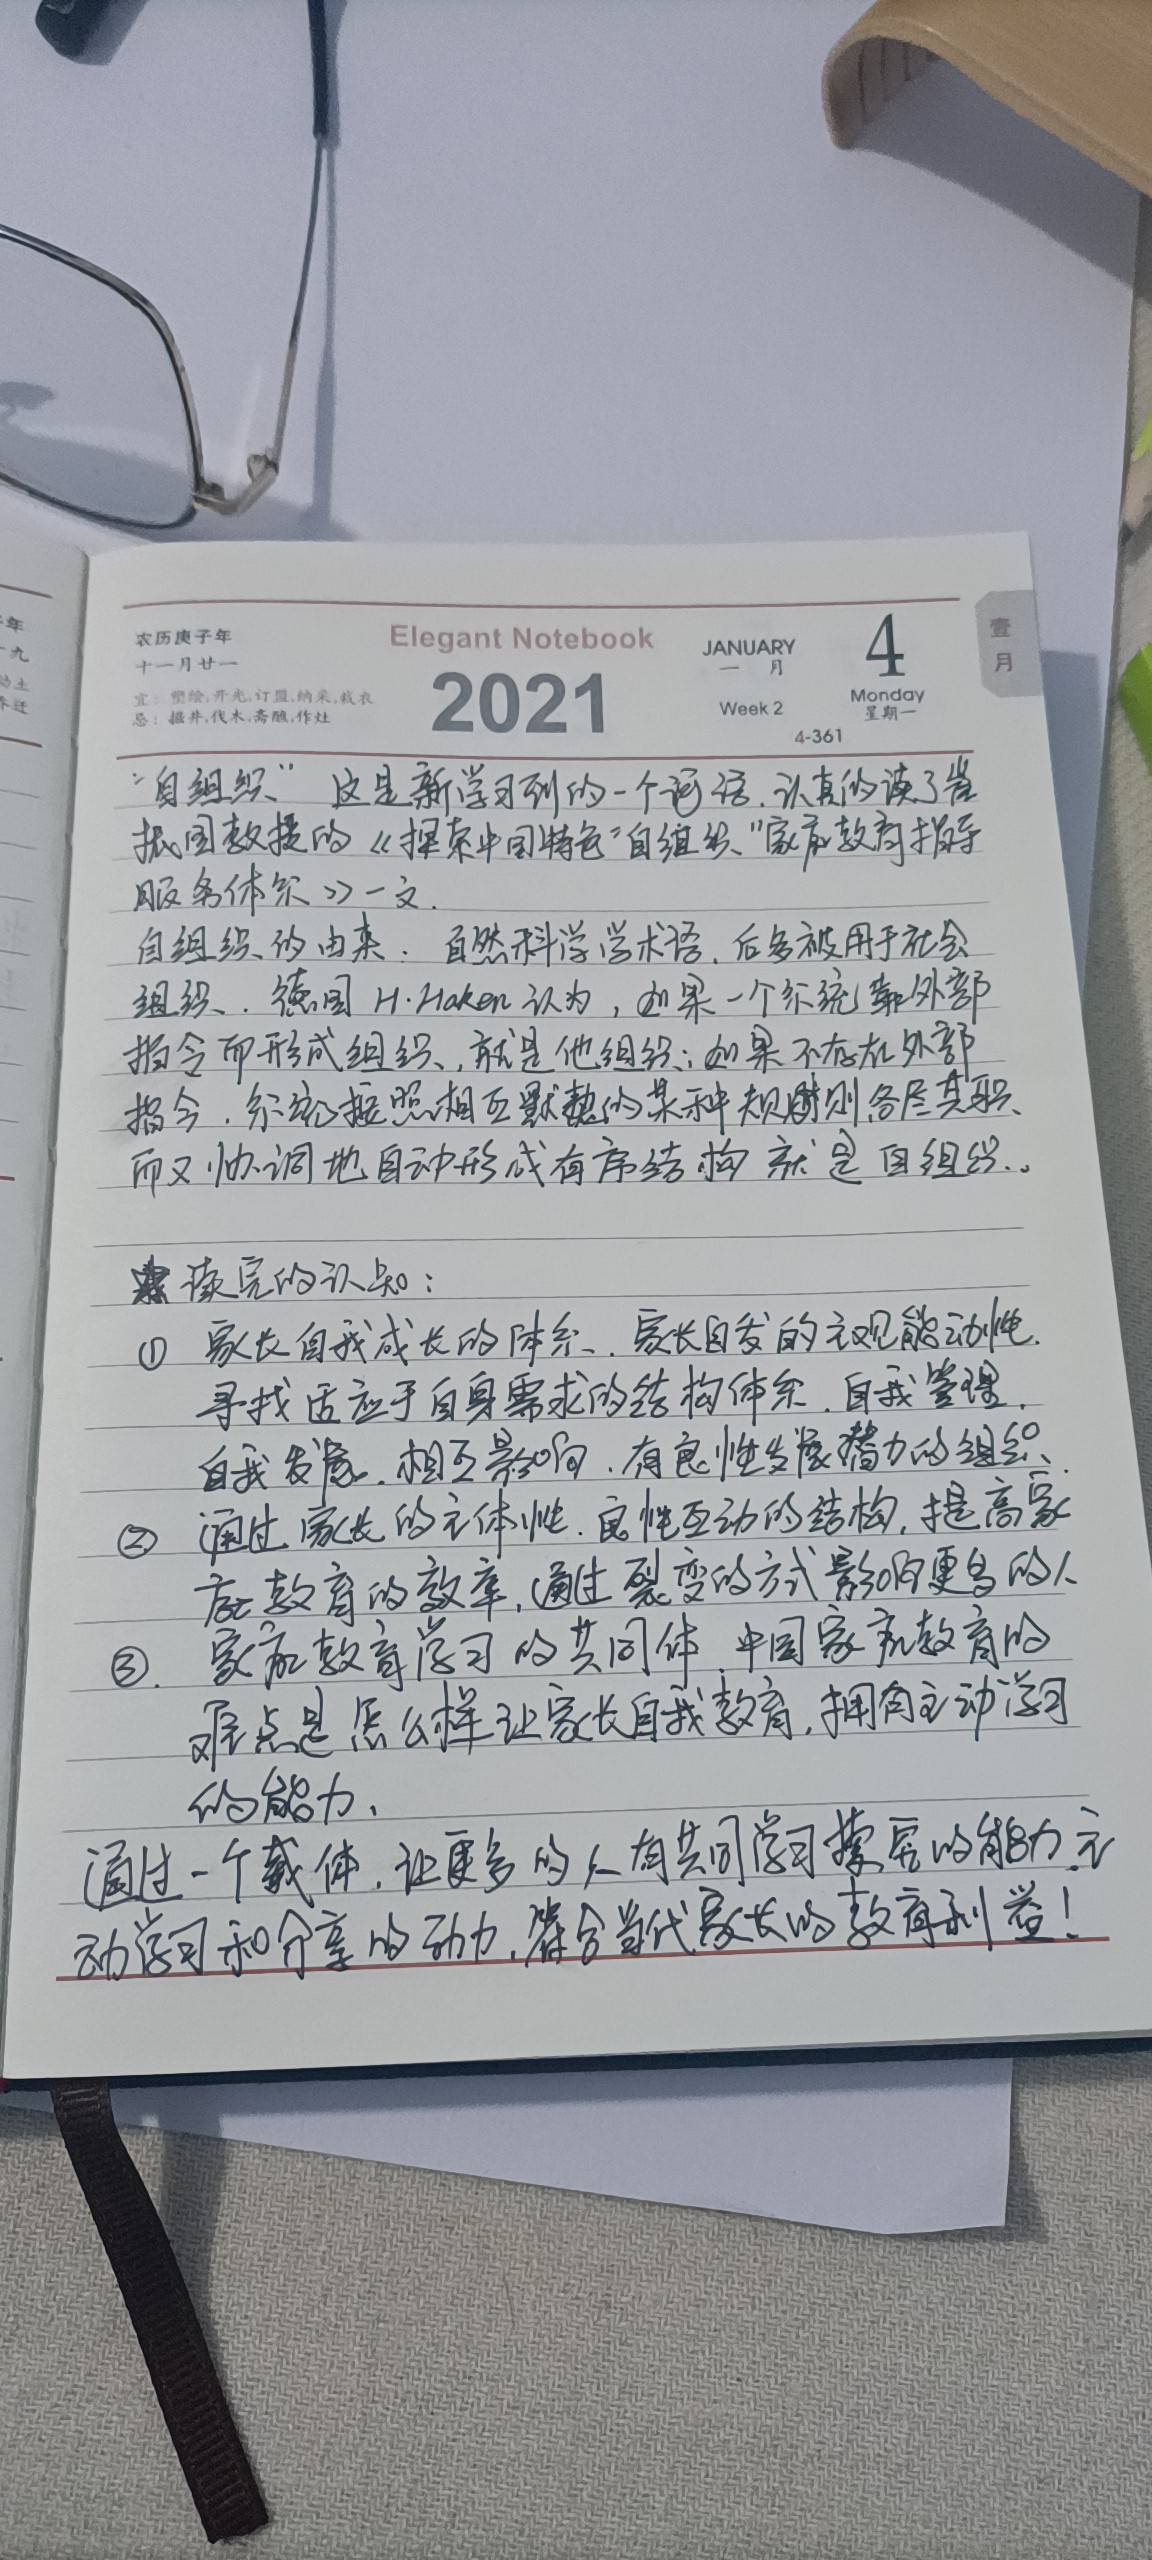 农历庚子年
十一月廿一
宜：塑绘,开光,订盟,纳采,裁衣
忌：掘井,伐木,斋醮,作灶
Elegant Notebook
2021
JANUARY
一 月
Week 2
4
Monday
星期一
4-361
壹
月
"自组织" 这是新学习到的一个词语.认真的读了崔
振国教授的《探索中国特色"自组织"家庭教育指导
服务体系》一文.
自组织的由来：自然科学学术语,后多被用于社会
组织.德国 H·Haken 认为,如果一个系统靠外部
指令而形成组织,就是他组织;如果不存在外部
指令,系统按照相互默契的某种规则各尽其职
而又协调地自动形成有序结构 就是自组织.。
读完的认知：
① 家长自我成长的体系.家长自发的主观能动性.
寻找适应于自身需求的结构体系.自我管理.
自我发展.相互影响.有良性发展潜力的组织.
② 通过家长的主体性.良性互动的结构,提高家
庭教育的效率,通过裂变的方式影响更多的人
③. 家庭教育学习的共同体.中国家庭教育的
难点是怎么样让家长自我教育,拥有主动学习
的能力、
通过一个载体.让更多的人有共同学习探究的能力.主
动学习和分享的动力,符合当代家长的教育利益!
年
九
动土